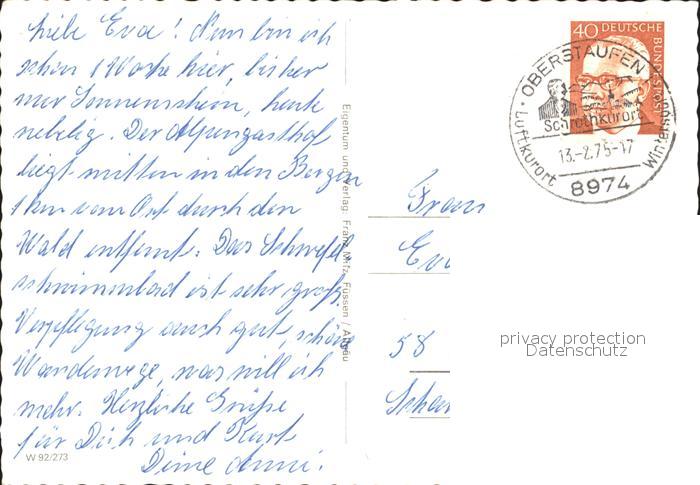 Liebe Eva! Nun bin ich
schon 1 Woche hier, bisher
nur Sonnenschein, heute
nebelig. Der Alpengasthof
liegt mitten in den Bergen
1 km vom Ort durch den
Wald entfernt. Das Schwefel
schwimmbad ist sehr groß.
Verpflegung auch gut, schöne
Wanderwege, was will ich
mehr. Herzliche Grüße
für Dich und Kurt
Deine Anni.
W 92/273
Eigentum und Verlag: Franz Milz, Füssen / Allgäu
40 DEUTSCHE BUNDESPOST
OBERSTAUFEN
Schrothkurort
Luftkurort
13.-2.75-17
Wintersport
8974
Frau
58
privacy protection
Datenschutz